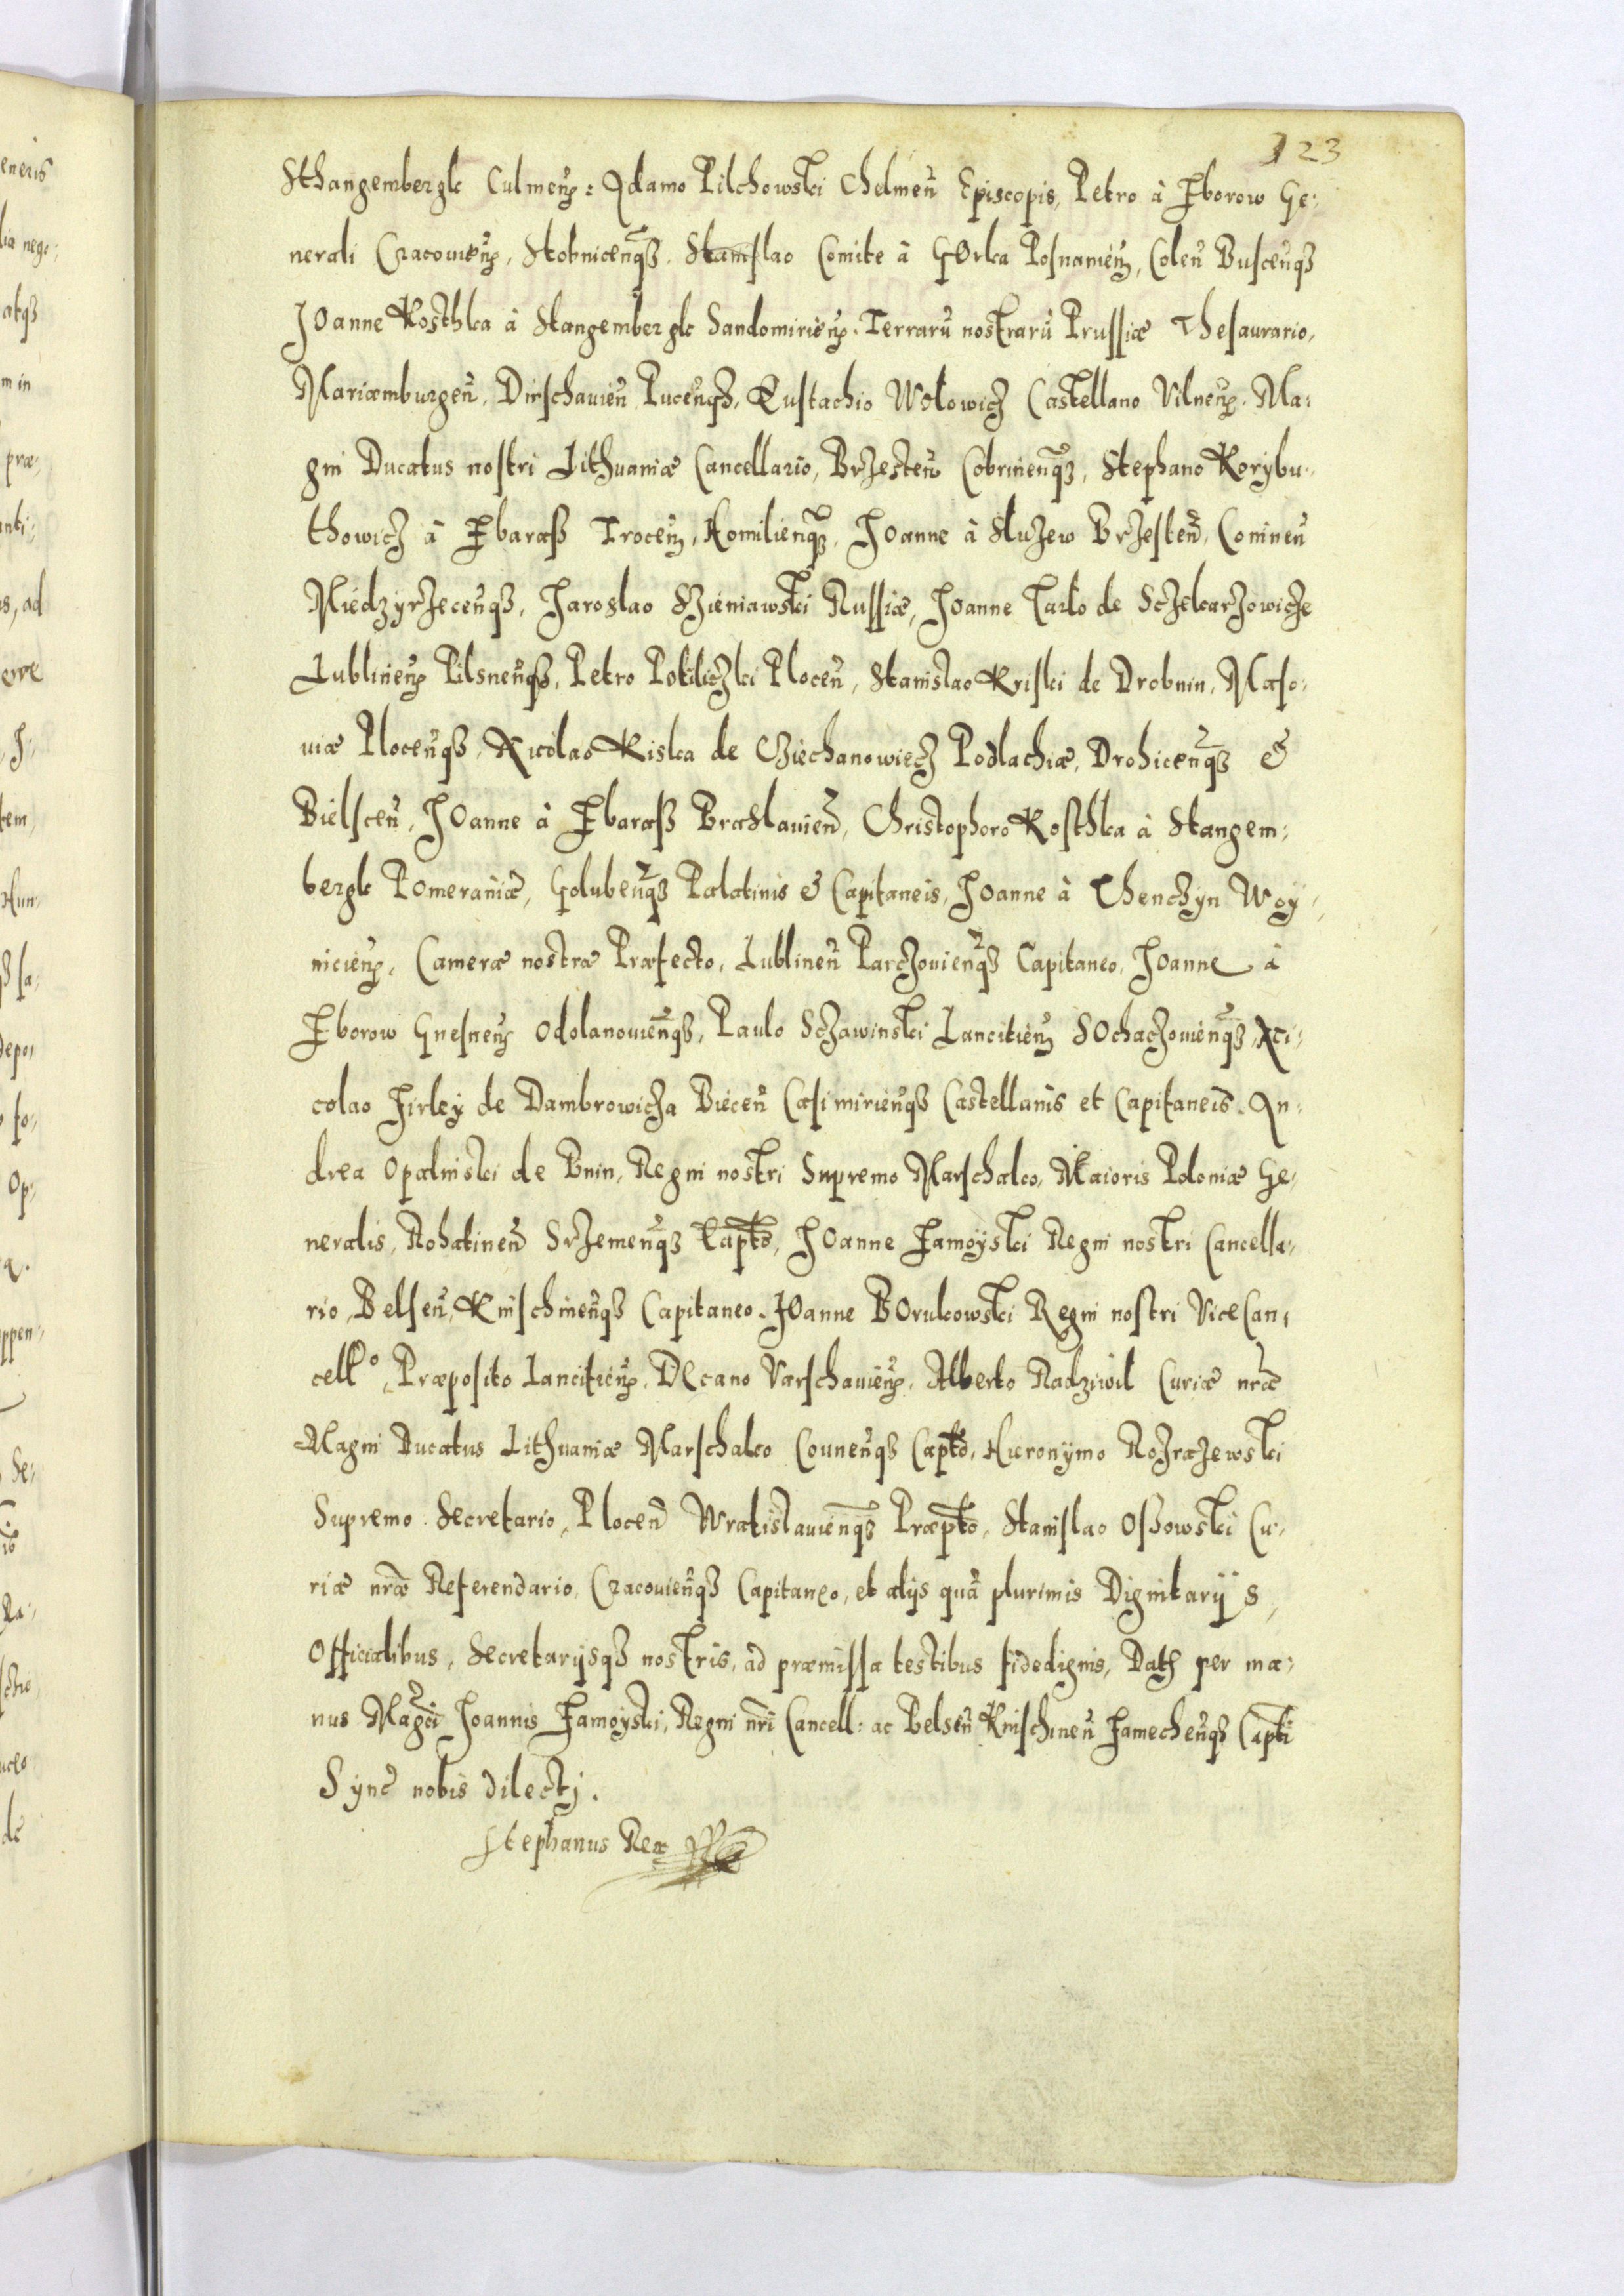 123
Sthangembergk Culmeñ: Adamo Pilchowski Chelmeñ Episcopis, Petro à Zborow Ge:
nerali Cracovieñ, Stobniceñqz. Stanislao Comite à GOrka Posnanieñ, Coleñ Busceñqz
JOanne Kosthka à Stangembergk Sandomirieñ. Terrarũ nostrarũ Prussiæ Thesaurario,
Mariæmburgeñ, Dirschavieñ Puceñqz, Eustachio Wolowicz Castellano Vilneñ. Ma:
gni Ducatus nostri Lithuaniæ Cancellario, Brzesteñ Cobrineñqz, Stephano Korybu:
thowicz à Zbaraß Troceñ, Homilieñqz, JOanne à Sluzew Brzesteñ, Conineñ
Miedzyrzeceñqz, Jaroslao Szieniawski Russiæ, Joanne Tarlo de Sczekarzowicze
Lublineñ Pilsneñqz, Petro Potuliczki Ploceñ, Stanislao Kriski de Drobnin, Maso:
uiæ Ploceñqz, Nicolao Kiska de Cziechanowiecz Podlachiæ, Drohiceñqz &
Bielsceñ, JOanne à Zbaraß Braslavieñ, Christophoro Kosthka à Stangem:
bergk POmeraniæ, Golubeñqz Palatinis & Capitaneis, JOanne à Thenczyn Woy:
nicieñ, Cameræ nostræ Præfecto, Lublineñ Parczovieñqz Capitaneo, Joanne à
Zborow Gnesneñ Odolanovieñqz, Paulo Sczawinski Lancitieñ SOchaczovieñqz, Ni:
colao Firley de Dambrowicza Bieceñ Casimirieñqz Castellanis et Capitaneis. An:
drea Opalinski de Bnin, Regni nostri Supremo Marschalco, Maioris Poloniæ Ge:
neralis, Rohatineñ Srzemeñqz Capto, JOanne Zamoyski Regni nostri Cancella:
rio, Belseñ, Knischineñqz Capitaneo. JOanne BOrukowski Regni nostri ViceCan:
cellº, Præposito Lancitieñ, DEcano Varschavieñ, Alberto Radziwil Curiæ nr̃æ
Magni Ducatus Lithuaniæ Marschalco Couneñqz Capto, Hieronymo Rozrazewski
Supremo Secretario, Ploceñ Wratislavieñqz Præpto, Stanislao Ossowski Cu:
riæ nr̃æ Referendario, Cracovieñqz Capitaneo, et alijs quã plurimis Dignitarijs,
Officialibus, Secretarijsqz nostris, ad præmissa testibus fidedignis, Dat per ma:
nus Magci Joannis Zamoyski, Regni nr̃i Cancell: ac Belseñ Knischineñ Zamecheñqz Capti
Synè nobis dilecti.
Stephanus Rex